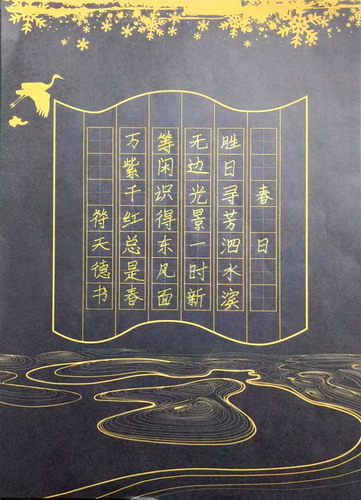 春日
胜日寻芳泗水滨
无边光景一时新
等闲识得东风面
万紫千红总是春
符天德书